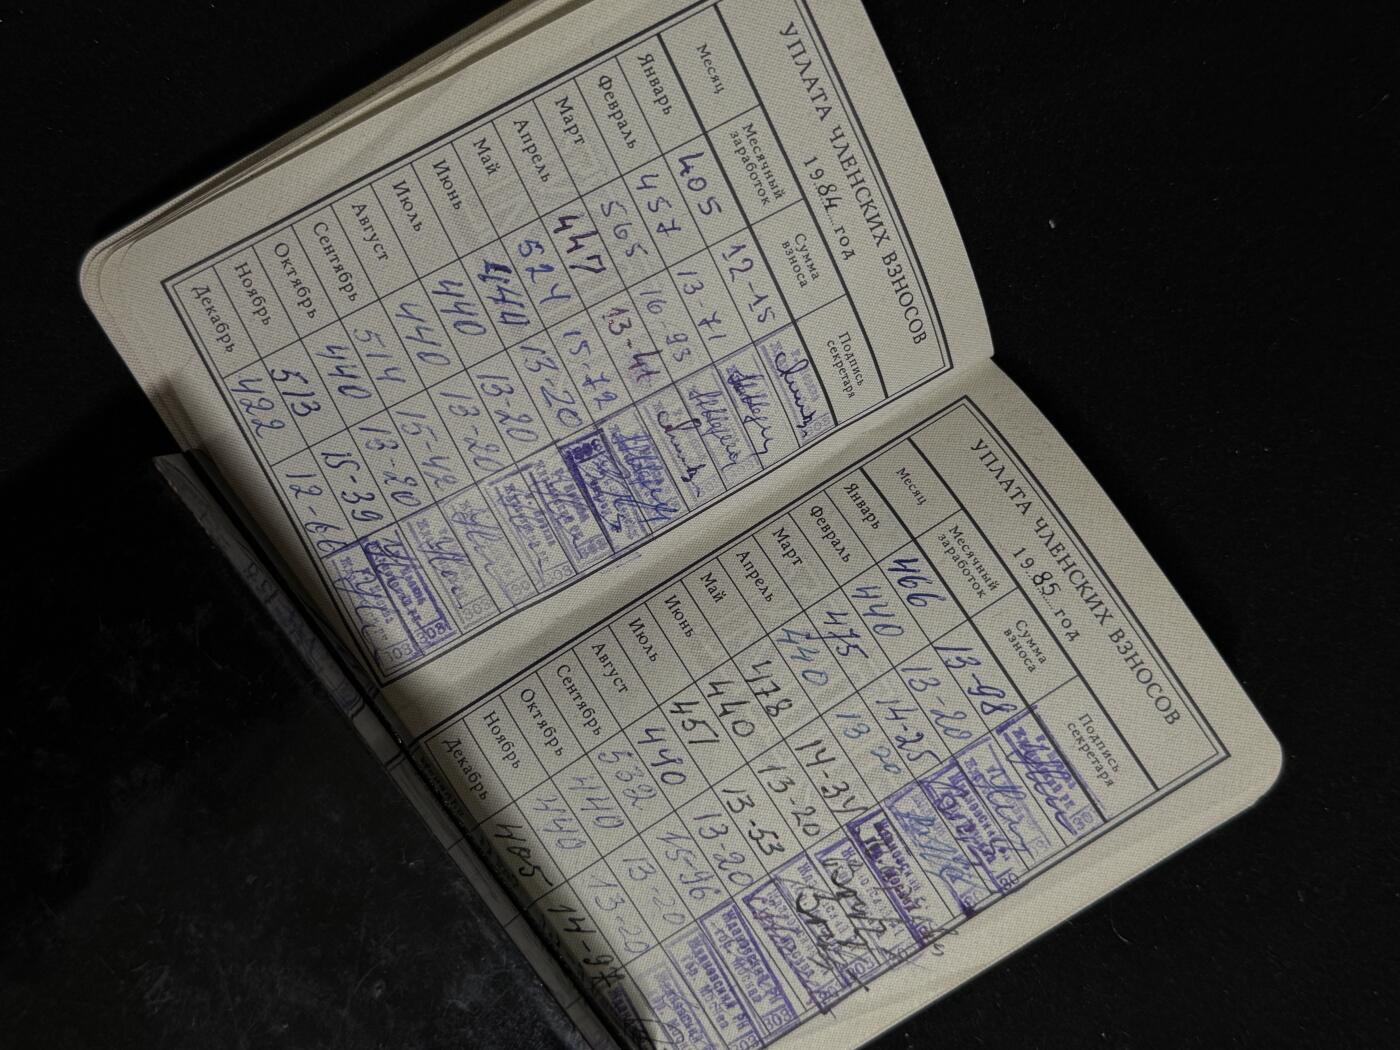 УПЛАТА ЧЛЕНСКИХ ВЗНОСОВ
1984 год
Месяц Месячный заработок Сумма взноса Подпись секретаря
Январь 405 12-15
Февраль 457 13-71
Март 565 16-93
Апрель 447 13-41
Май 524 15-72
Июнь 440 13-20
Июль 440 13-20
Август 440 13-20
Сентябрь 514 15-42
Октябрь 440 13-20
Ноябрь 513 15-39
Декабрь 422 12-66
УПЛАТА ЧЛЕНСКИХ ВЗНОСОВ
1985 год
Месяц Месячный заработок Сумма взноса Подпись секретаря
Январь 466 13-98
Февраль 440 13-20
Март 475 14-25
Апрель 440 13 20
Май 478 14-34
Июнь 440 13-20
Июль 451 13-53
Август 440 13-20
Сентябрь 532 15-96
Октябрь 440 13-20
Ноябрь 440 13-20
Декабрь 14-97